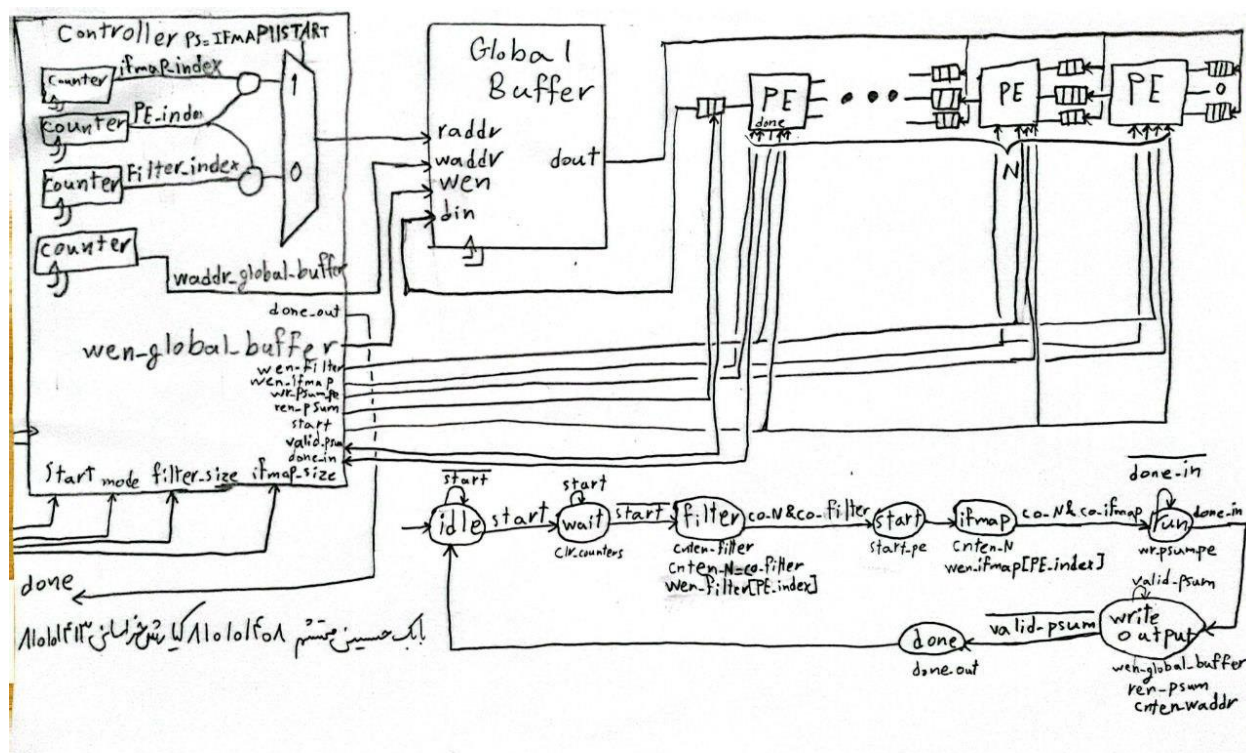 Controller PS=IFMAP||START
counter
ifmap_index
counter
PE_index
counter
Filter_index
counter
waddr_global_buffer
1
0
done_out
wen_global_buffer
wen_filter
wen_ifmap
wr_psumpe
ren_psum
start
valid_psum
done_in
start mode filter_size ifmap_size
done
Global
Buffer
raddr
waddr
wen
din
dout
PE
done
PE
PE
N
start
idle
start
start
wait
clr_counters
start
filter
cnten_filter
cnten_N=co_filter
wen_filter[PE_index]
co_N&co_filter
start
start_pe
ifmap
cnten_N
wen_ifmap[PE_index]
co_N&co_ifmap
done_in
run
wr_psumpe
done_in
valid_psum
write
output
wen_global_buffer
ren_psum
cnten_waddr
valid_psum
done
done_out
بابک حسینی محتشم ۸۱۰۱۰۱۴۰۸